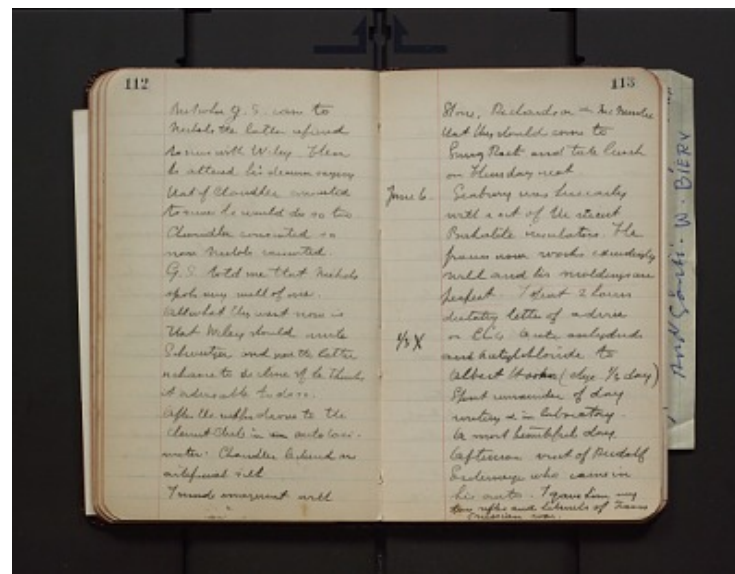 112
G. S. came to
Nichols the latter refused
to serve with Wiley. Then
he altered his decision saying
that if Chandler consented
to serve he would do so too
Chandler consented so
now Nichols consented.
G. S. told me that Nichols
spoke very well of me.
All what they want now is
that Wiley should write
Schweitzer and give the latter
a chance to decline if he thinks
it advisable to do so.
After the drove to the
Chemist Club in an auto taxi-
meter. Chandler lectured on
artificial silk
I made with
113
Stone, Richardson
that they should come to
Snug Rock and take lunch
on Thursday next
June 6. Seabury was here early
with a set of the recent
Bakelite insulators. The
press now works exceedingly
well and his moldings are
perfect. I spent 2 hours
dictating letter of advice
on
1/3 X and Acetylchloride to
Albert (chge 1/3 day)
Spent remainder of day
writing & in laboratory.
A most beautiful day
Afternoon visit of Rudolf
who came in
his auto. I gave him my
and of Franco
war.
And Gönti - W. BIERY